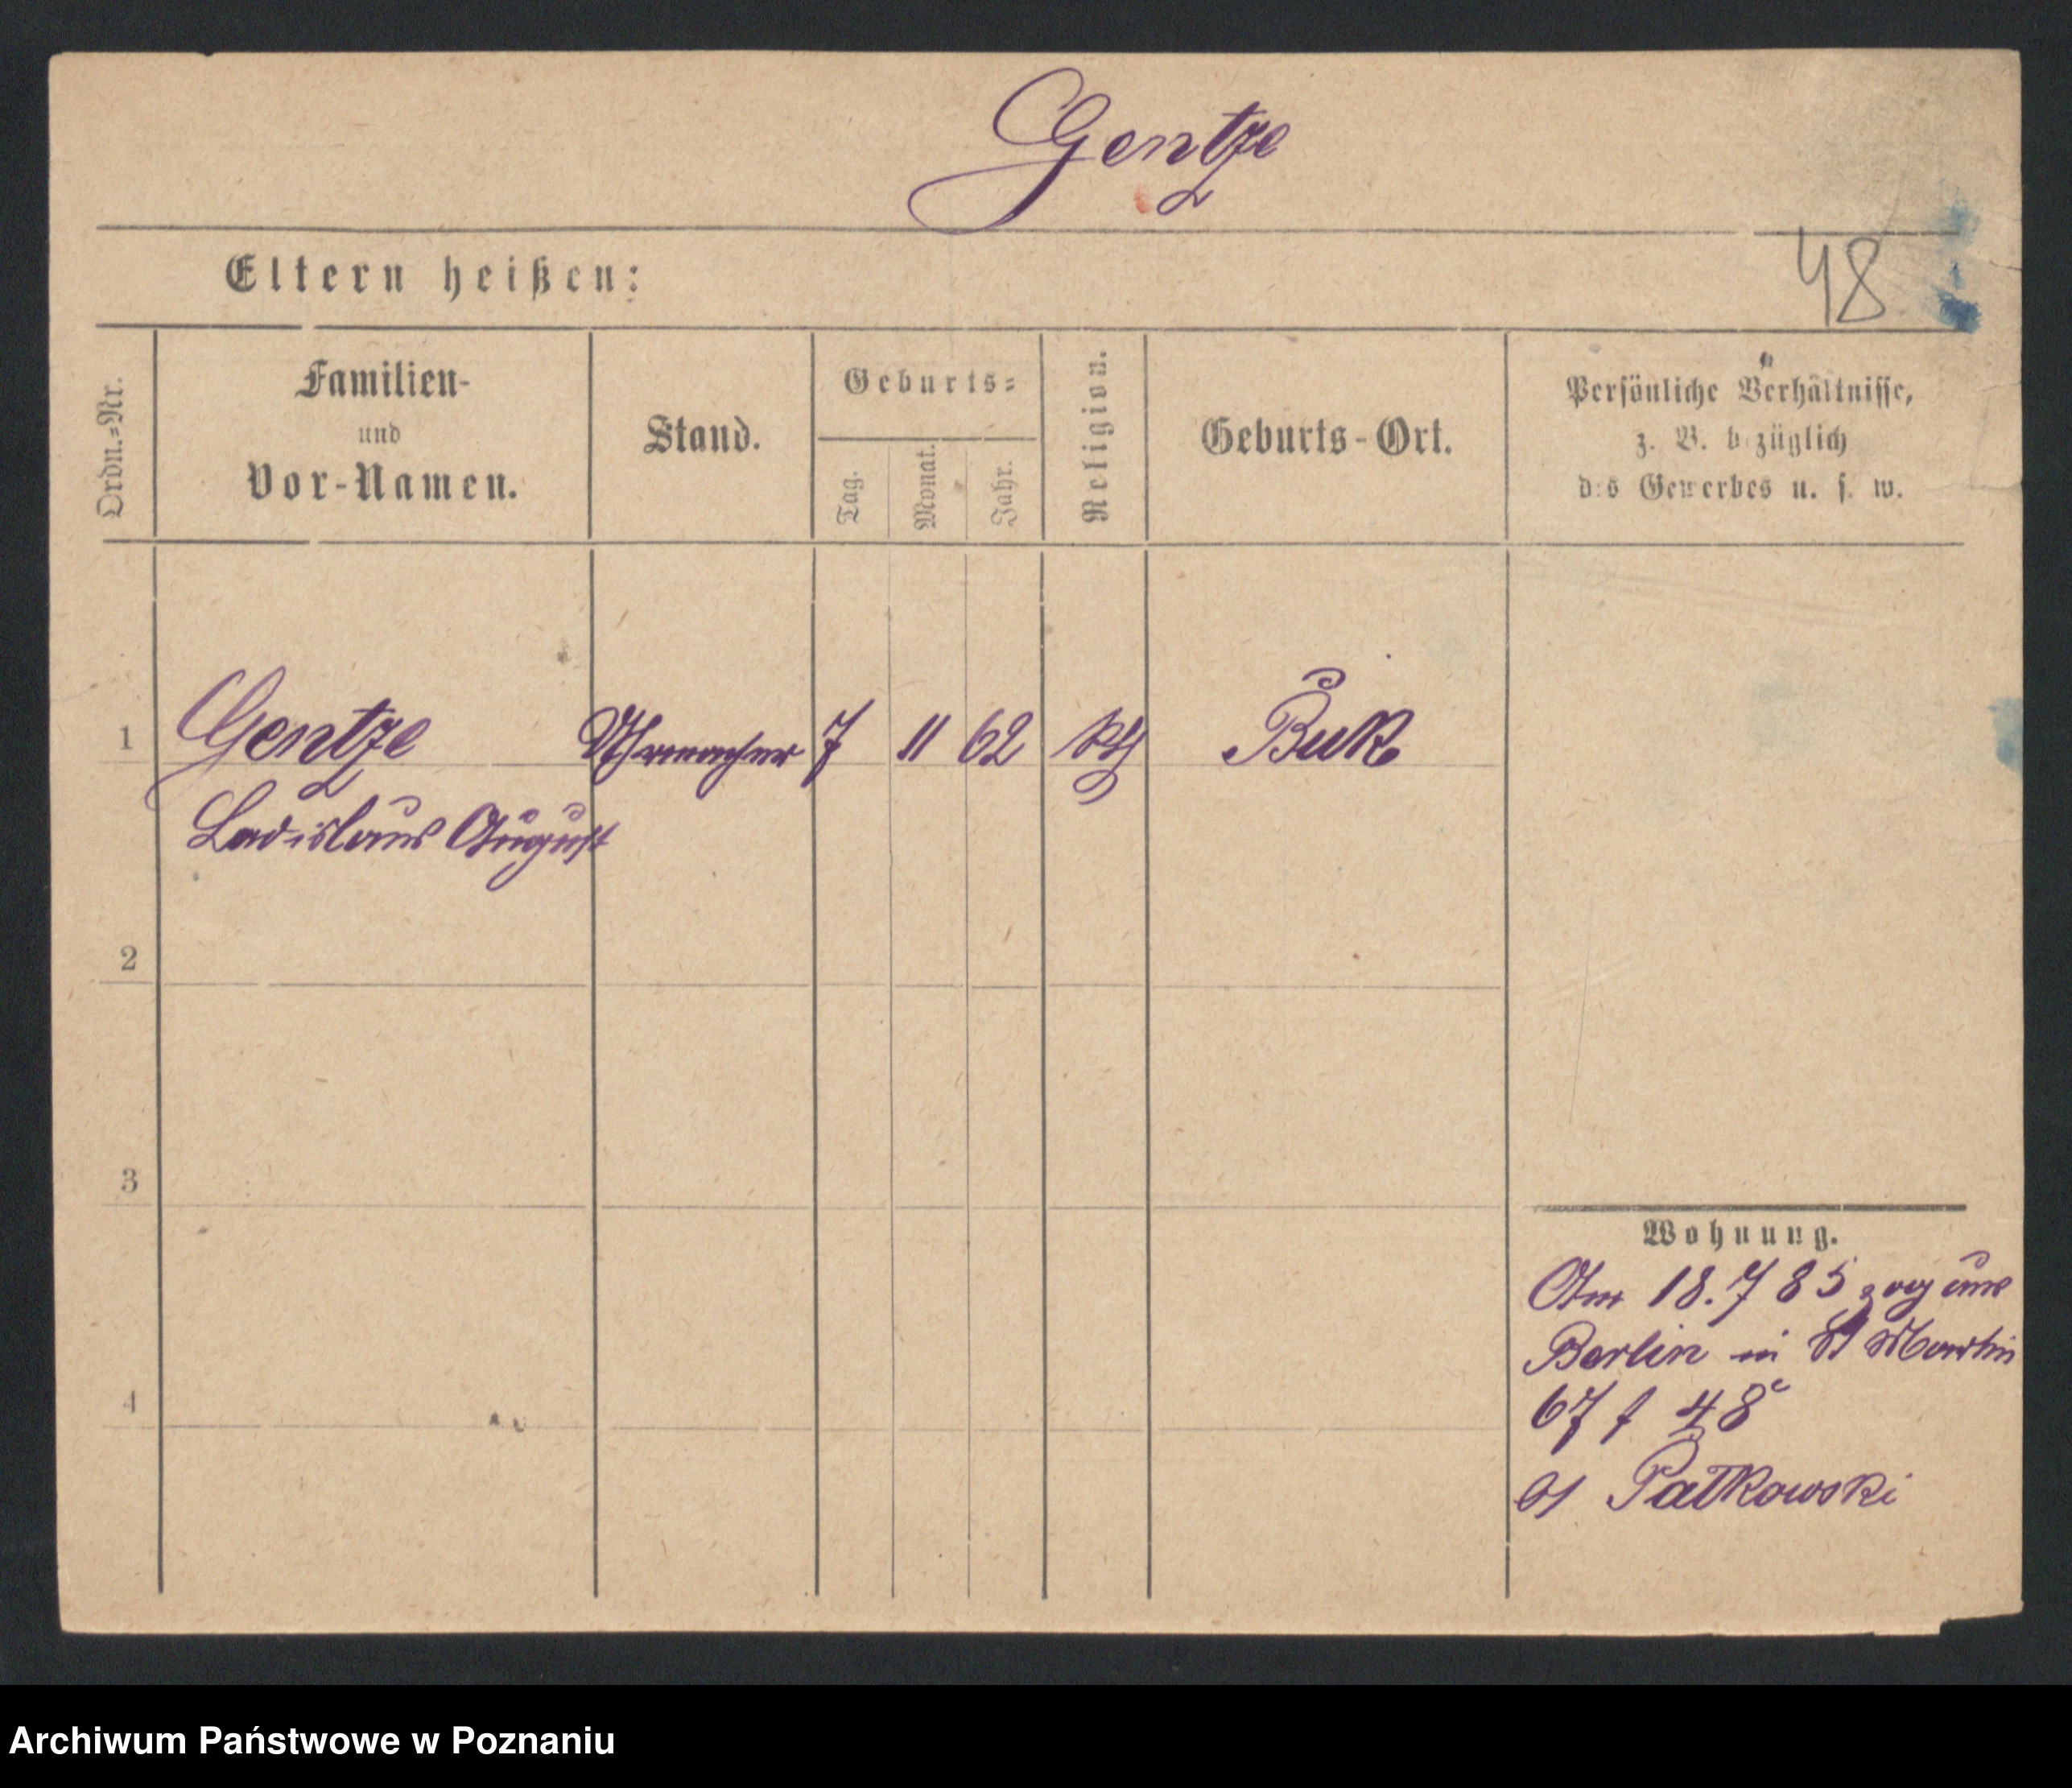 Gentze
Eltern heißen:
48
Ordn.=Nr.
Familien-
und
Vor-Namen.
Stand.
Geburts=
Tag.
Monat.
Jahr.
Religion.
Geburts-Ort.
Persönliche Verhältnisse,
z. B. bezüglich
des Gewerbes u. s. w.
1 Gentze Uhrmacher 7 11 62 kth Buk
Ladislaus August
2
3
4
Wohnung.
Am 18.7 85 zog aus
Berlin in St Martin
67 f 48
Patkowski
Archiwum Państwowe w Poznaniu